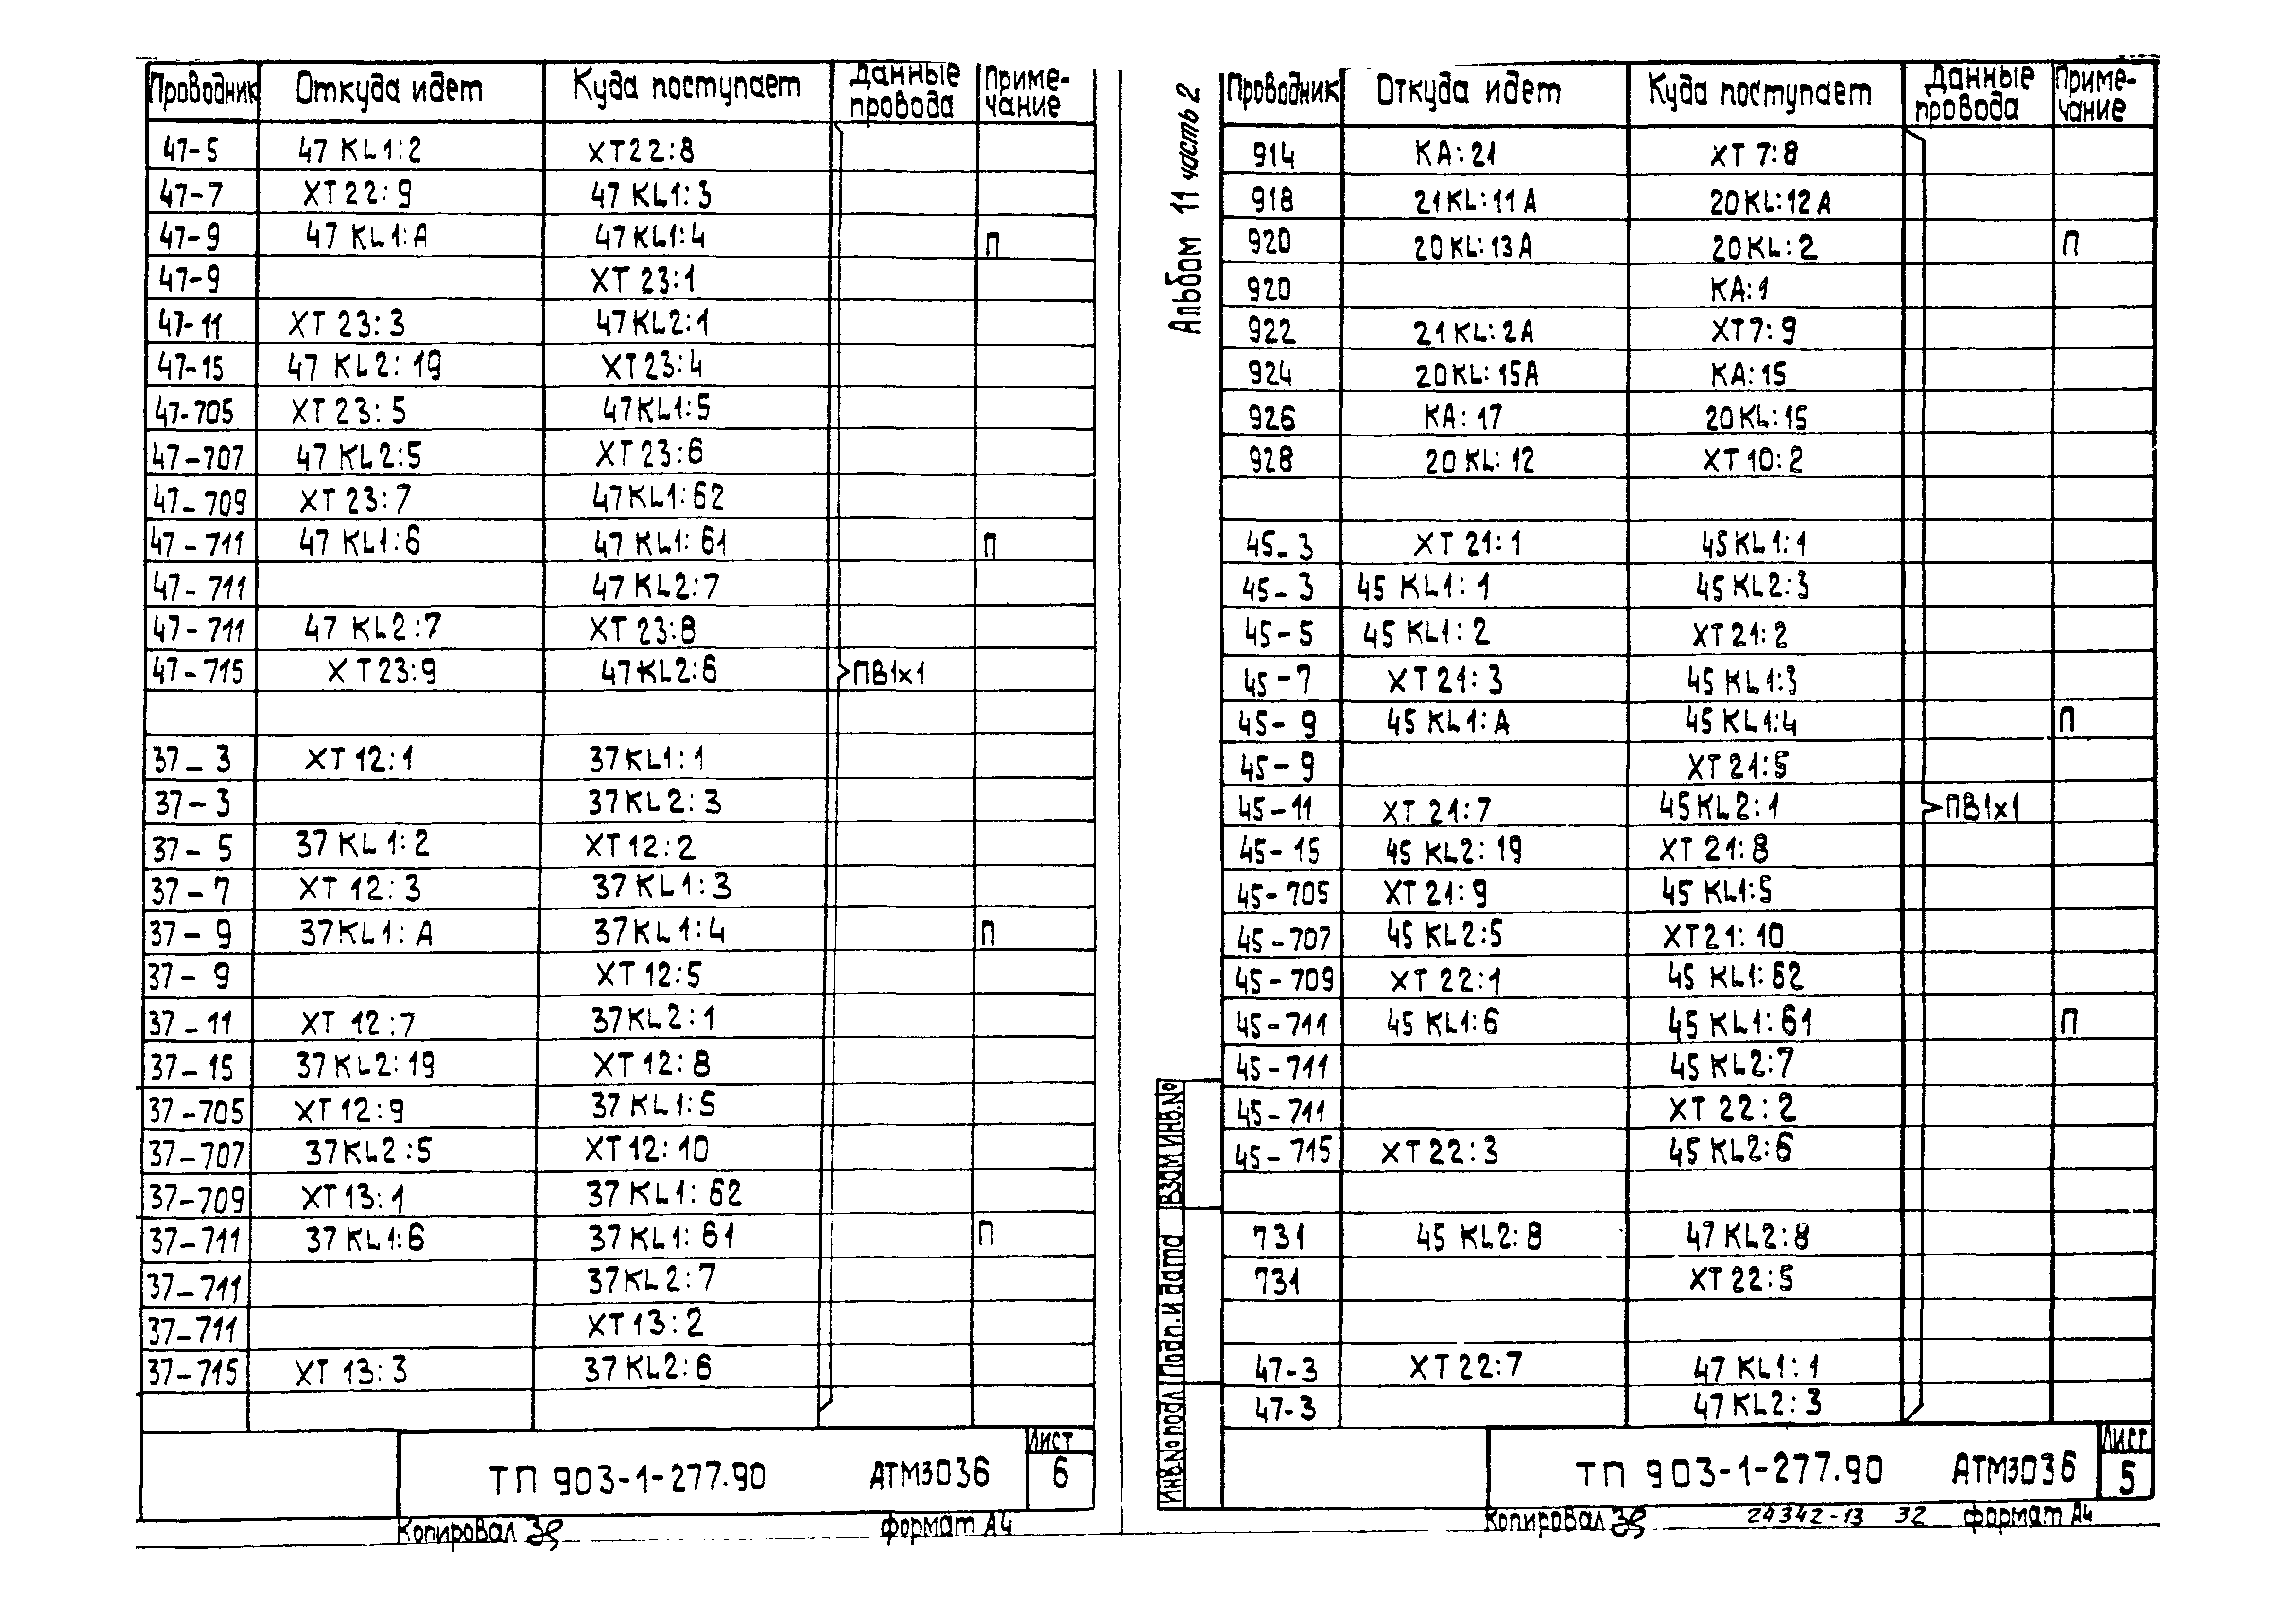 Проводник Откуда идет Куда поступает Данные провода Приме-чание
47-5 47 KL1:2 XT22:8
47-7 XT22:9 47 KL1:3
47-9 47 KL1:A 47KL1:4 П
47-9 XT 23:1
47-11 XT 23:3 47KL2:1
47-15 47 KL2:19 XT23:4
47-705 XT 23:5 47KL1:5
47-707 47 KL2:5 XT23:6
47-709 XT 23:7 47KL1:62
47-711 47 KL1:6 47 KL1:61 П
47-711 47 KL2:7
47-711 47 KL2:7 XT 23:8
47-715 XT23:9 47KL2:6 ПВ1х1
37-3 XT 12:1 37KL1:1
37-3 37KL2:3
37-5 37 KL1:2 XT12:2
37-7 XT 12:3 37 KL1:3
37-9 37KL1:A 37KL1:4 П
37-9 XT 12:5
37-11 XT 12:7 37KL2:1
37-15 37KL2:19 XT12:8
37-705 XT12:9 37 KL1:5
37-707 37KL2:5 XT12:10
37-709 XT13:1 37 KL1:62
37-711 37 KL1:6 37 KL1:61 П
37-711 37KL2:7
37-711 XT13:2
37-715 XT 13:3 37 KL2:6
ТП 903-1-277.90 АТМ3036 Лист 6
Копировал формат А4
Альбом 11 часть 2
Проводник Откуда идет Куда поступает Данные провода Приме-чание
914 KA:21 XT 7:8
918 21KL:11A 20KL:12A
920 20KL:13A 20KL:2 П
920 KA:1
922 21KL:2A XT7:9
924 20KL:15A KA:15
926 KA:17 20KL:15
928 20 KL:12 XT10:2
45-3 XT 21:1 45KL1:1
45-3 45 KL1:1 45KL2:3
45-5 45 KL1:2 XT21:2
45-7 XT21:3 45 KL1:3
45-9 45 KL1:A 45 KL1:4 П
45-9 XT21:5
45-11 XT 21:7 45KL2:1 ПВ1х1
45-15 45 KL2:19 XT 21:8
45-705 XT21:9 45 KL1:5
45-707 45 KL2:5 XT21:10
45-709 XT 22:1 45 KL1:62
45-711 45 KL1:6 45 KL1:61 П
45-711 45 KL2:7
45-711 XT 22:2
45-715 XT22:3 45 KL2:6
731 45 KL2:8 47 KL2:8
731 XT 22:5
47-3 XT22:7 47 KL1:1
47-3 47 KL2:3
Инв.№ подл Подп. и дата Взам инв.№
ТП 903-1-277.90 АТМ3036 Лист 5
Копировал 24342-13 32 формат А4